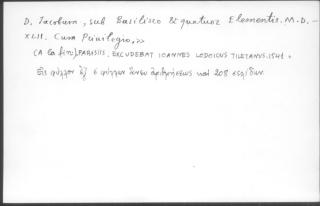 D. Jacobum, sub Basilisco & quatuor Elementis. M.D. -
XLII. Cum Privilegio, >>
(A la fin): PARISIIS, EXCUDEBAT IOANNES LODOICUS TILETANUS. 1541 .
φύλλων ἄνευ ἀριθμήσεως καὶ 208 σελίδων